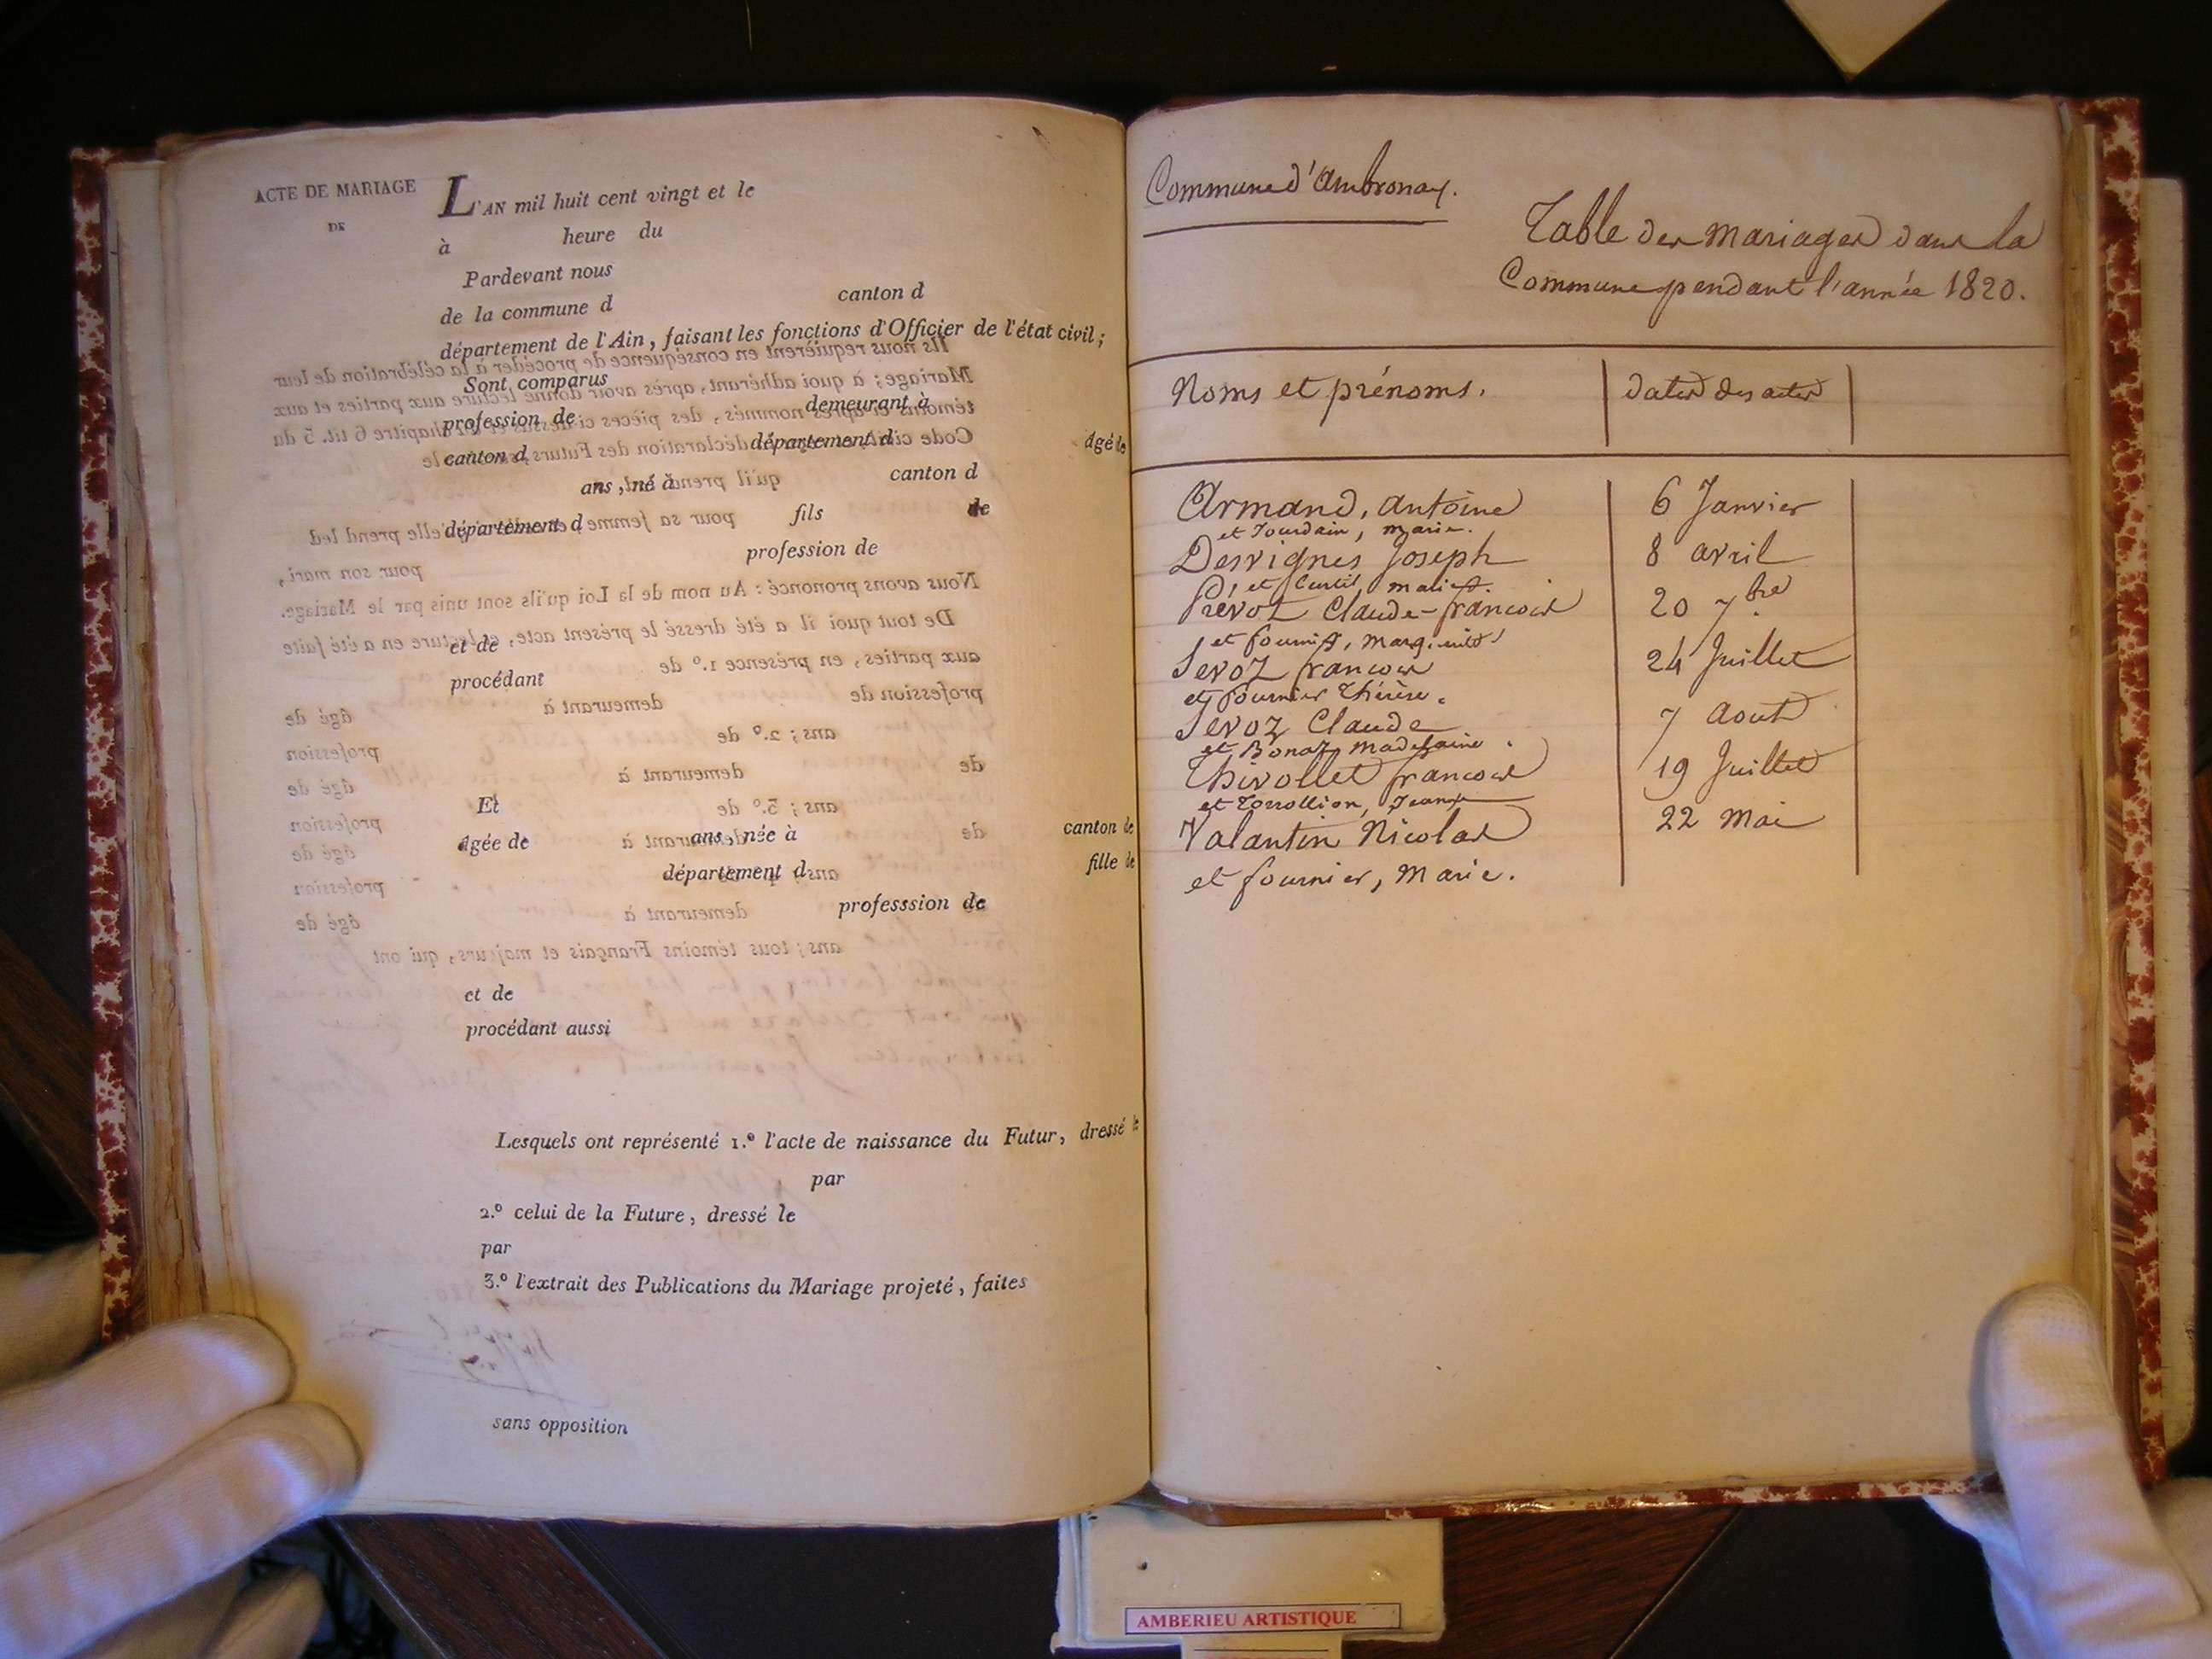 ACTE DE MARIAGE
DE
L'AN mil huit cent vingt et le
à heure du
Pardevant nous
de la commune d canton d
département de l'Ain, faisant les fonctions d'Officier de l'état civil;
Sont comparus
profession de demeurant à
canton d département d âgé de
ans, né à canton d
département d fils de
profession de
et de
procédant
Et
âgée de ans, née à canton de
département d fille de
professsion de
et de
procédant aussi
Lesquels ont représenté 1.º l'acte de naissance du Futur, dressé le
par
2.º celui de la Future, dressé le
par
3.º l'extrait des Publications du Mariage projeté, faites
sans opposition
Commune d'Ambronay.
Table des mariages dans la
Commune pendant l'année 1820.
Noms et prénoms. dates des actes
Armand, Antoine 6 Janvier
et Jourdain, marie.
Desvignes Joseph 8 avril
et Curtil
Prevot Claude-francois 20 7bre
et
Sevoz francois 24 Juillet
et fournier thérèse.
Sevoz Claude 7 Aout
et Bonaz, Madelaine.
Thivollet francois 19 Juillet
et Jeanne
Valantin Nicolas 22 Mai
et fournier, Marie.
AMBERIEU ARTISTIQUE